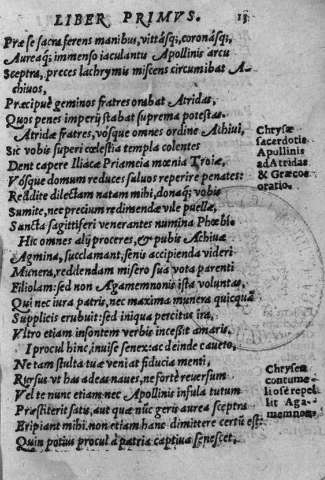 LIBER PRIMVS. 13
Præ se sacra ferens manibus, vittásq;, corónasq;,
Aureaq; immenso iaculantis Apollinis arcu
Sceptra, preces lachrymis miscens circumibat A-
chiuos,
Præcipuè geminos fratres orabat Atridas,
Quos penes imperij stabat suprema potestas.
Atridæ fratres, vósque omnes ordine Achiui,
Sic vobis superi cœlestia templa colentes
Dent capere Iliacæ Priameia mœnia Troiæ,
Vósque domum reduces saluos reperire penates:
Reddite dilectam natam mihi, donaq; vobis
Sumite, nec precium redimendæ vile puellæ,
Sancta sagittiferi venerantes numina Phœbi.
Hic omnes alij proceres, & pubis Achiuæ
Agmina, succlamant, senis accipienda videri
Munera, reddendam misero sua vota parenti
Filiolam: sed non Agamemnonis ista voluntas,
Qui nec iura patris, nec maxima munera quicquā
Supplicis erubuit: sed iniqua percitus ira,
Vltro etiam insontem verbis incessit amaris.
I procul hinc, inuise senex: ac deinde caueto,
Ne tam stulta tuæ veniat fiducia menti,
Rursus vt has adeas naues, ne fortè reuersum
Vel te nunc etiam nec Apollinis insula tutum
Præstiterit satis, aut quæ nūc geris aurea sceptra
Eripiant mihi. non etiam hanc dimittere certū est:
Quin potius procul à patria captiua senescet,
Chrysæ
sacerdotis
Apollinis
ad Atridas
& Græcos
oratio.
Chrysen
contume-
liose repel
lit Aga-
memnon.